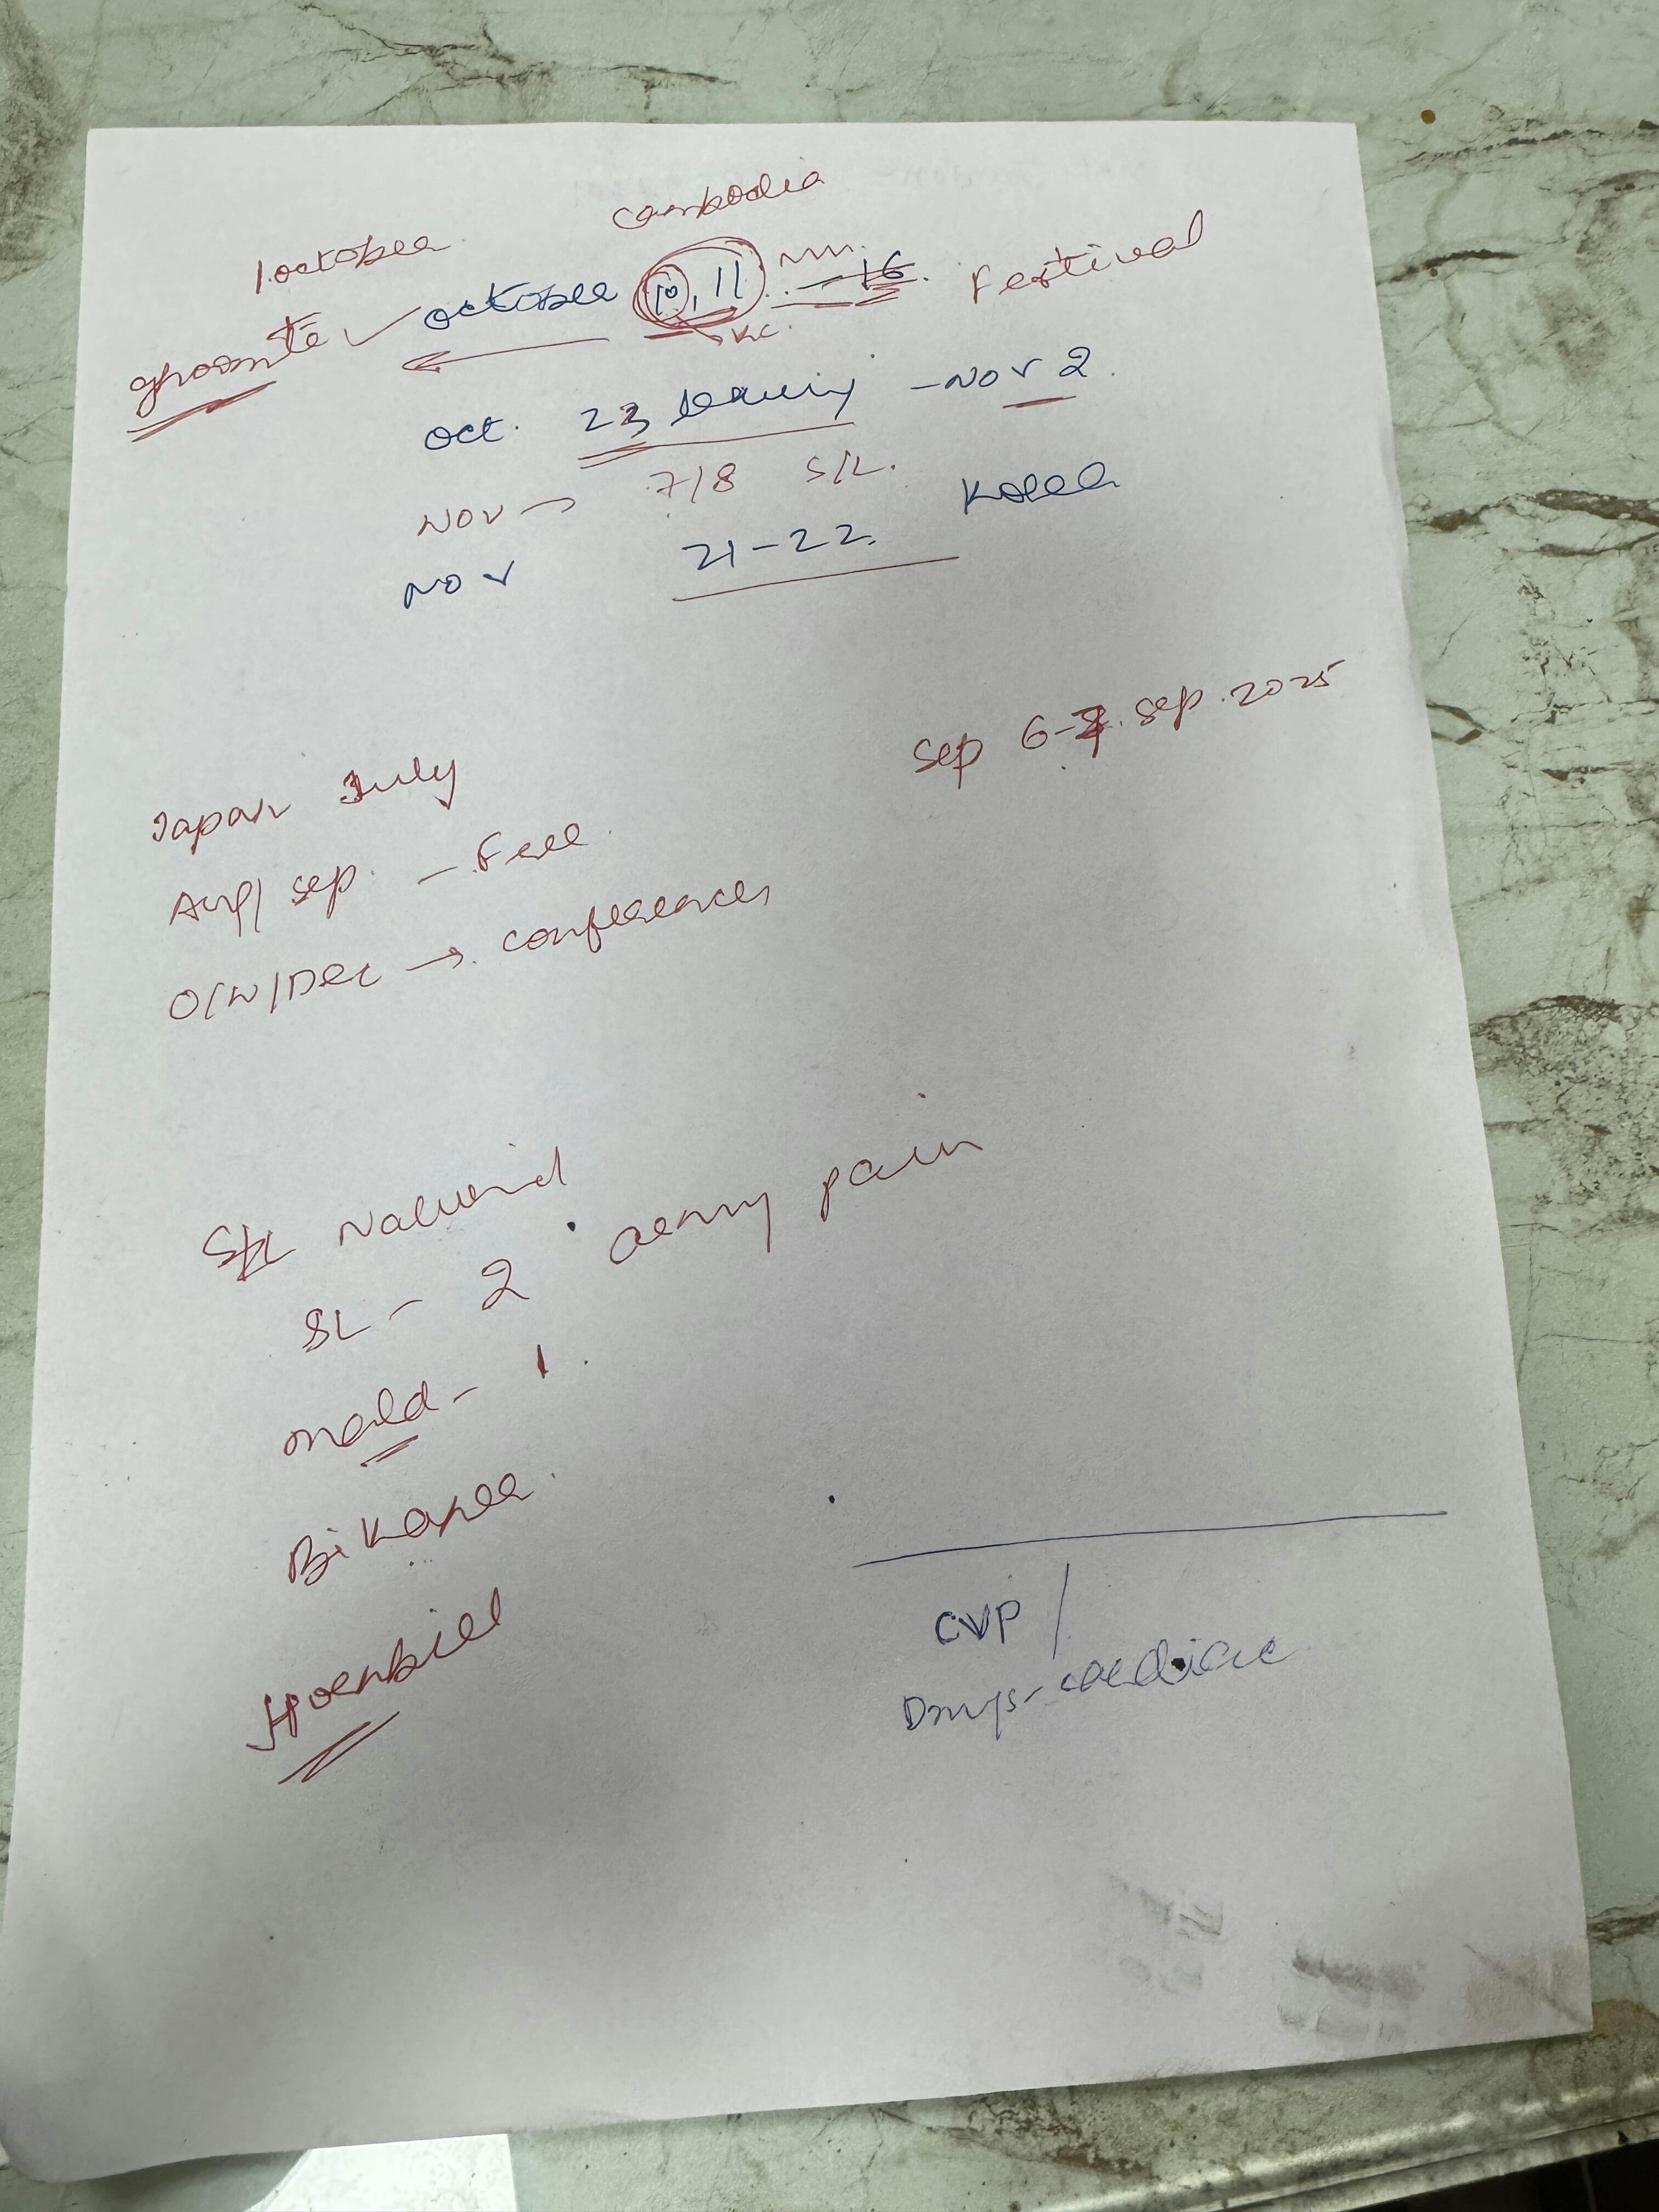 Cambodia
1. October
October 10, 11 - 16 Festival
KC
Oct. 23 leaving - Nov 2
Nov → 7/8 S/L.
Nov 21-22. Korea
Sep 6-7. Sep. 2025
Japan July
Aug/Sep. - Free
O/N/Dec → Conferences
S/L
SL - 2 army pain
mald - 1.
Bikaner
Hornbill
CVP /
Drugs - cardiac